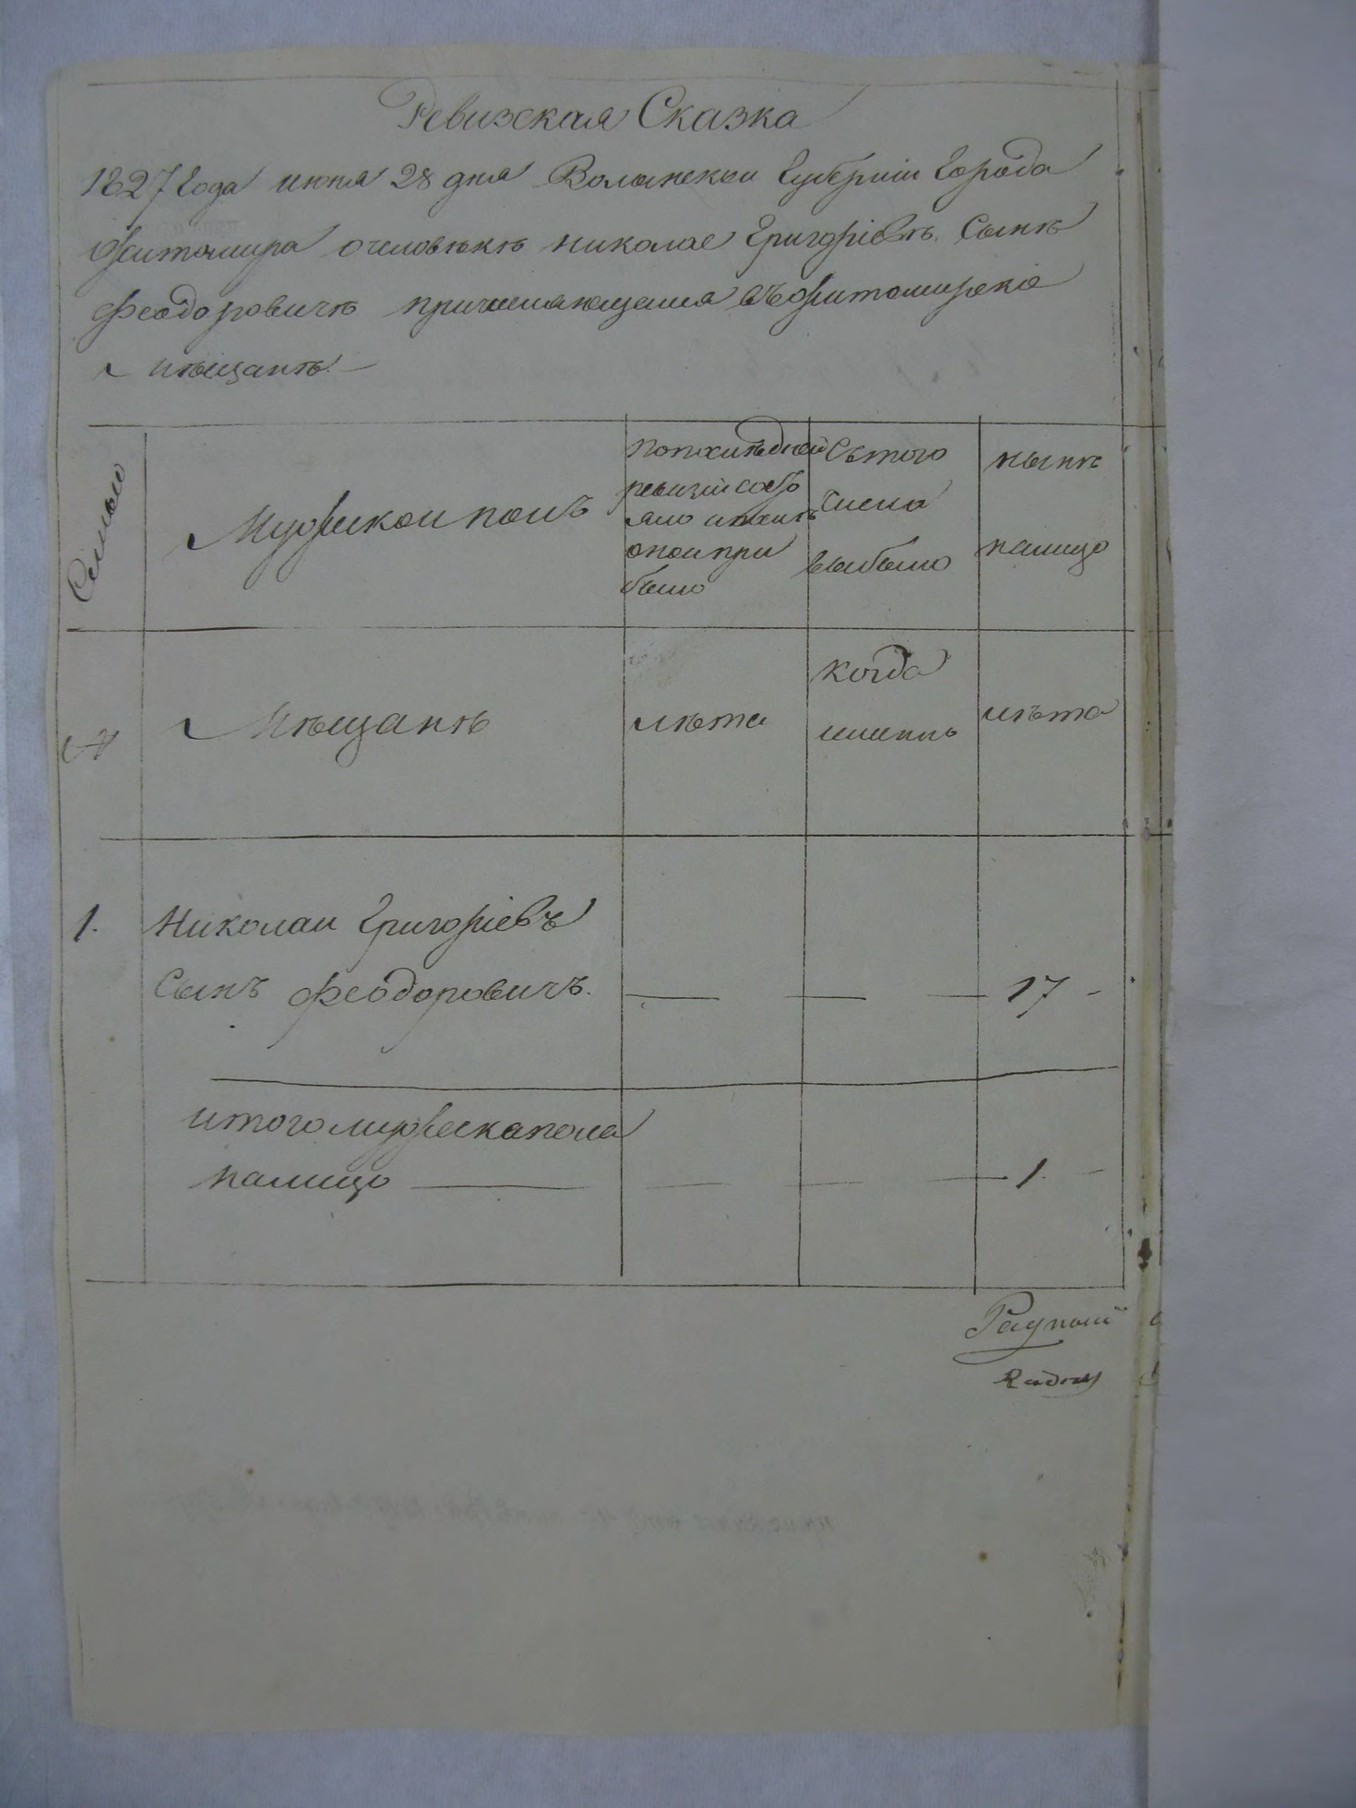 Ревизская Сказка
1827 Года июня 28 дня Волынскои Губерніи Города
Житомира о человѣкѣ Николае Григоріевѣ Сынѣ
Феодоровичѣ причисляющемся въ Житомирскіе
мѣщанѣ
Семьи
Мужескои полъ
По последней
ревизіи состо
яло и после
оной при
было
Съ того
числа
выбыло
нынѣ
налицо
№
Мѣщанѣ
лѣта
Когда
именно
лѣта
1. Николаи Григоріевъ
Сынъ Феодоровичъ. — — — 17 -
итого мужеска пола
налицо — — — 1. -